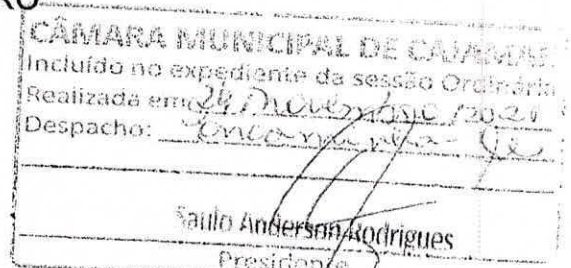 CÂMARA MUNICIPAL DE CAJAMAR
Incluído no expediente da sessão Ordinária
Realizada em 24 / novembro / 2021
Despacho: Encaminha-se
Saulo Anderson Rodrigues
Presidente